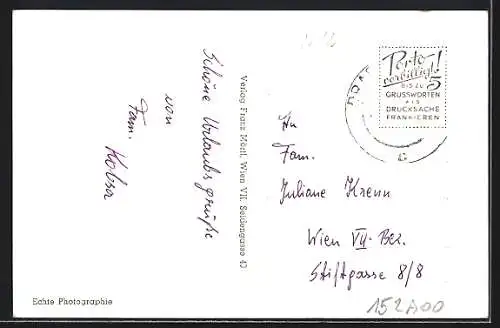 Schöne Urlaubsgrüße
von
Fam. Kobsa
Verlag Franz Mörtl, Wien VII, Seidengasse 42
Porto
verbilligt!
BIS ZU 5
GRUSSWORTEN
ALS
DRUCKSACHE
FRANKIEREN
G
An
Fam.
Juliane Krenn
Wien VII-Bez.
Stiftgasse 8/8
Echte Photographie
152A00